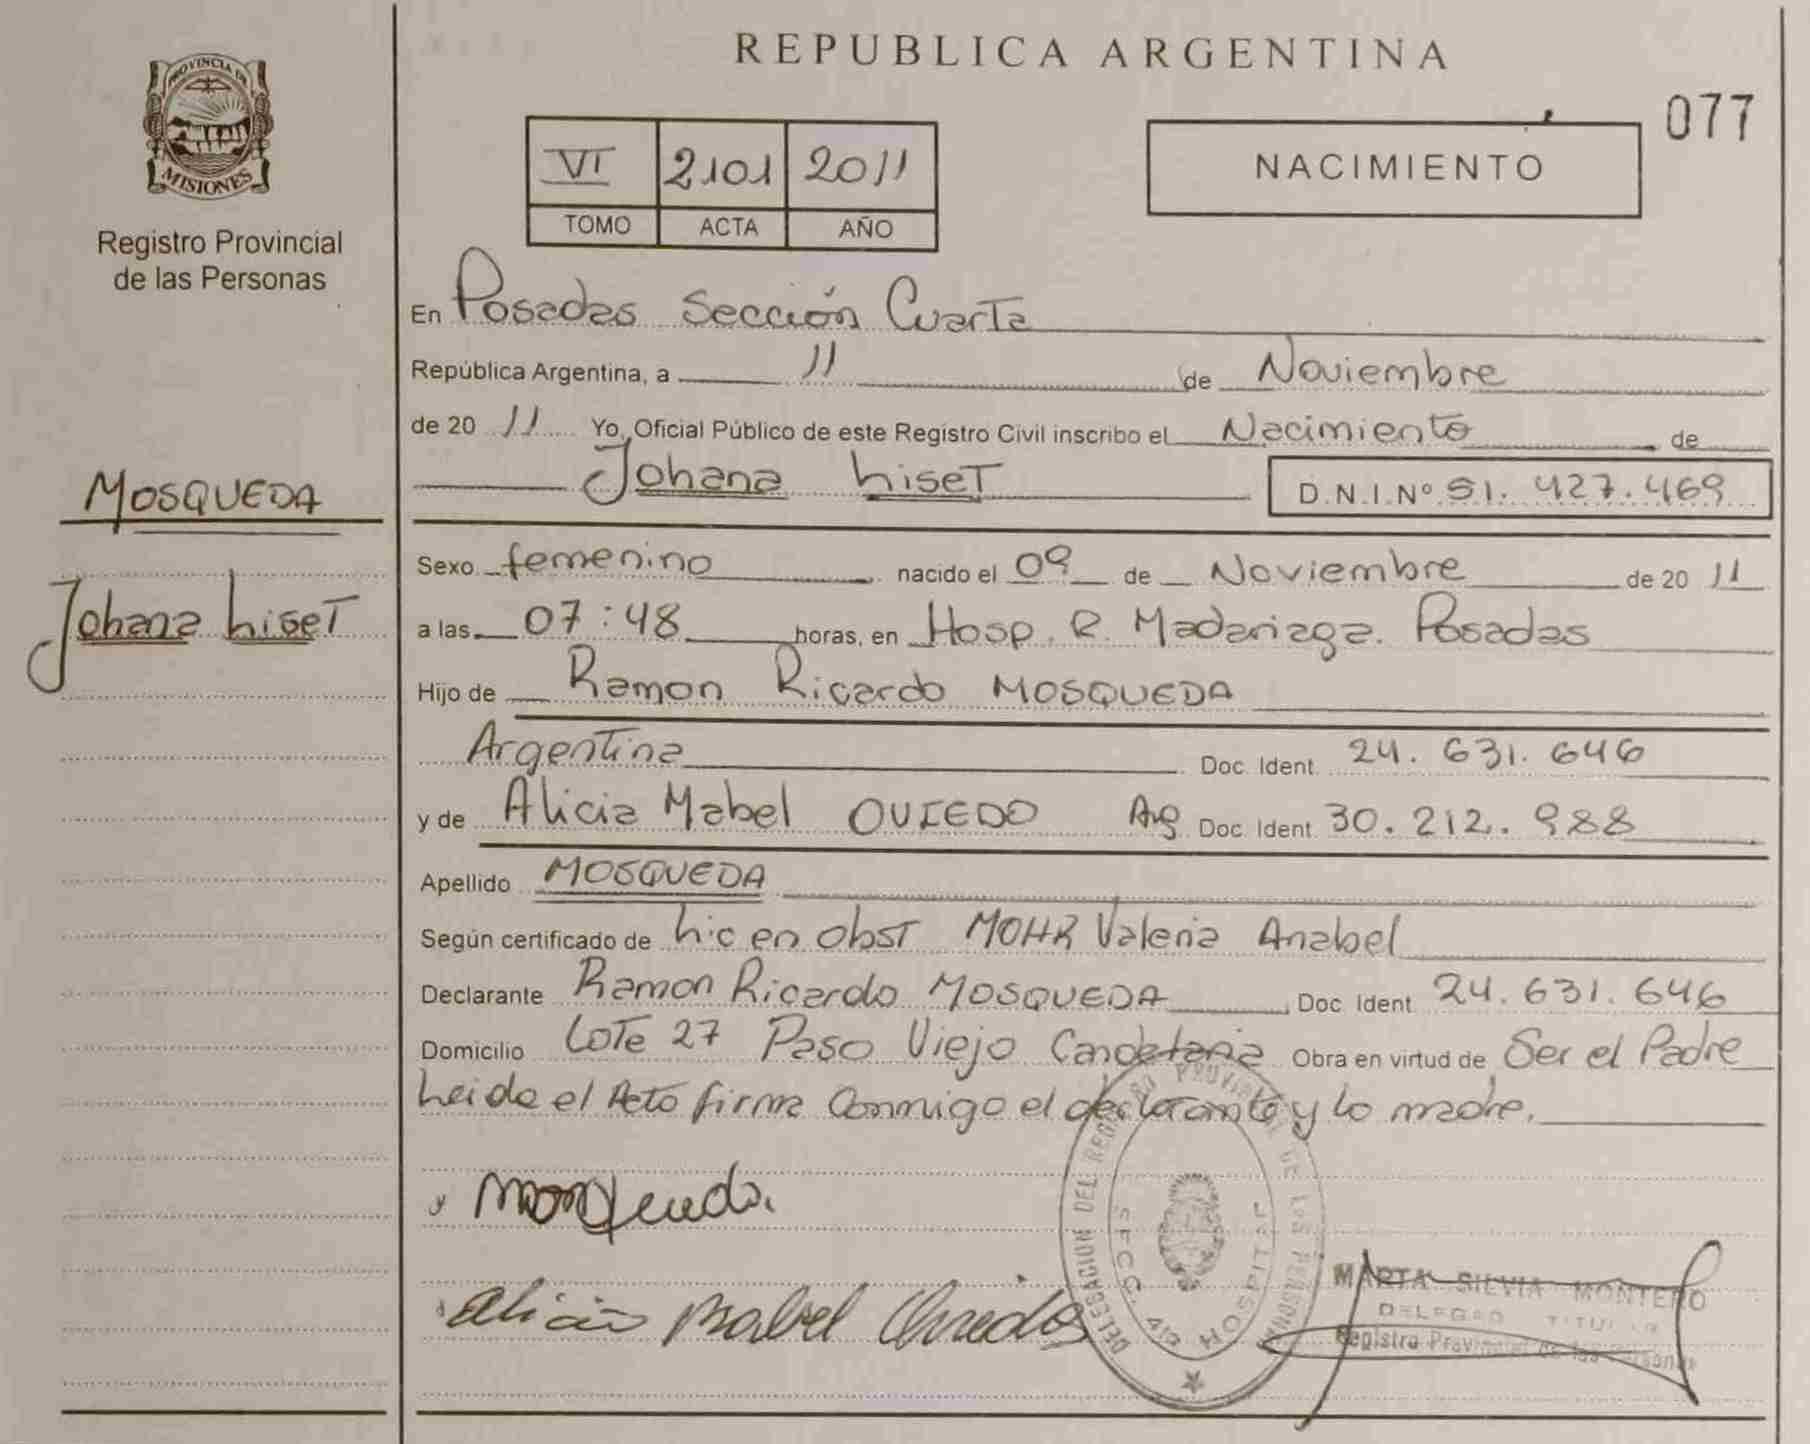 REPUBLICA ARGENTINA
077
PROVINCIA DE
MISIONES
Registro Provincial
de las Personas
VI 2101 2011
TOMO ACTA AÑO
NACIMIENTO
En Posadas Sección Cuarta
República Argentina, a 11 de Noviembre
de 20 11 Yo, Oficial Público de este Registro Civil inscribo el Nacimiento de
Johana Liset D.N.I.Nº 51.427.469
MOSQUEDA
Johana Liset
Sexo femenino nacido el 09 de Noviembre de 20 11
a las 07:48 horas, en Hosp. R. Madariaga. Posadas
Hijo de Ramon Ricardo MOSQUEDA
Argentina Doc. Ident. 24.631.646
y de Alicia Mabel OVIEDO Arg Doc. Ident. 30.212.988
Apellido MOSQUEDA
Según certificado de Lic en Obst MOHR Valeria Anabel
Declarante Ramon Ricardo MOSQUEDA Doc. Ident. 24.631.646
Domicilio Lote 27 Paso Viejo Candelaria Obra en virtud de Ser el Padre
Leida el Acto firma Conmigo el declarante y la madre.
Mosqueda.
Alicia Mabel Oviedo
DELEGACION DEL REGISTRO PROVINCIAL DE LAS PERSONAS
SECC. 4ta HOSPITAL
MARTA SILVIA MONTERO
DELEGAD TITULAR
Registro Provincial de las Personas